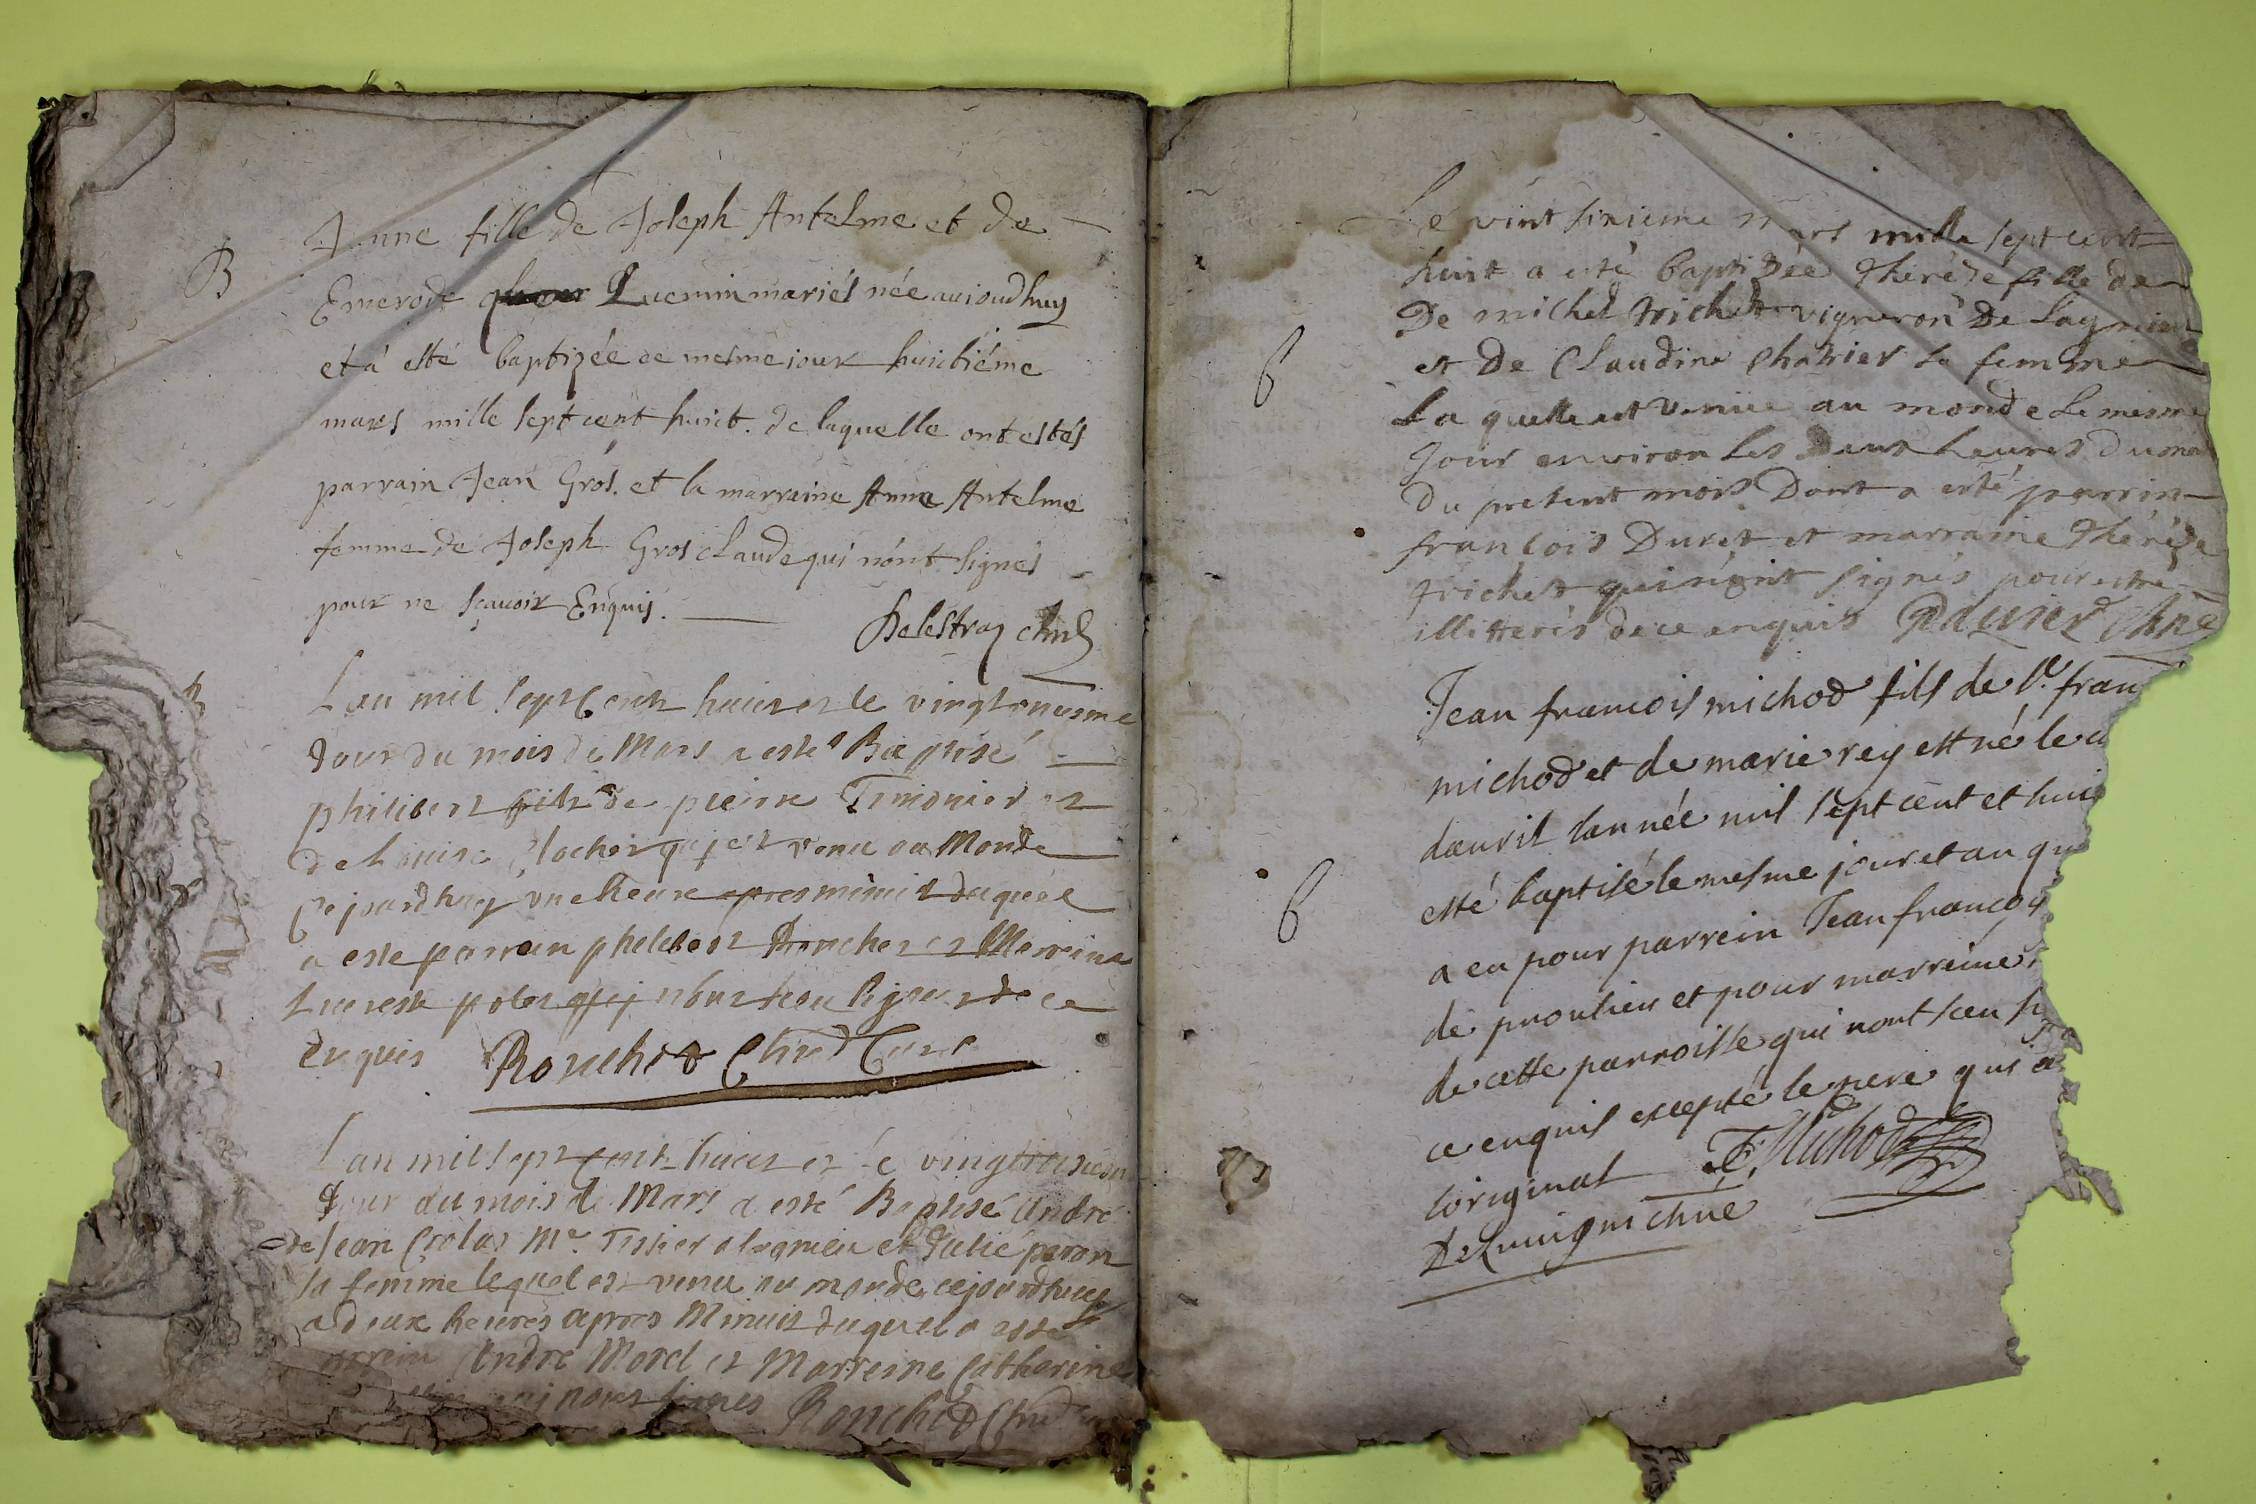 B
Anne fille de Joseph Antelme et de
Emerode Quemin mariés née auiourdhuy
et a esté baptizée ce mesme iour huictiéme
mars mille sept cent huict. de laquelle ont estés
parrain Jean Gros. et la marraine Anne Antelme
femme de Joseph Gros claude qui n'ont signés
pour ne sçauoir Enquis.
Delestraz chne
Lan mil sept Cent huict et le vingt onziesme
Jour du mois de Mars a esté Baptisé
philibert fils de pierre Timonier et
de Louise Clochet qui est venu au Monde
Ce jourdhuy vne heure apres minuit duquel
a este parrain philibert Ronchet et Marrine
Lucresse qui n'ont sceu signer de ce
Enquis Ronchet Chne Curé
Lan mil sept Cent huict et le
Jour du mois de Mars a esté Baptisé André
de Jean Crolas Me. Tissier a lagnieu et Julie peron
sa femme lequel est venu au monde cejourdhuy
a deux heures apres Minuit duquel a esté
parrein André Morel et Marreine Catherine
qui n'ont signés Ronchet Chne
Le vint sixieme Mars mille sept cent
huit a esté baptizée Thérèze fille de
De michel trichet vigneron De Lagnieu
et De Claudine Chatrier sa femme
La quelle est venüe au monde Le mesme
Jour environ les Deux heures du
du present mois Dont a esté parrin
françois Duret et marraine Thérèze
trichet qui n'ont signés pour estre
illitterés de ce enquis Pauier Chne
B
Jean francois michod fils de Sr. fran
michod et de marie rey est né le
dauril lannée mil sept cent et huit
esté baptisé le mesme jour et an que
B
a eu pour parrein Jean francoy
de proulieu et pour marreine
de cette parroisse qui nont sceu
ce enquis excepté le pere qui a
loriginal F. Michod
chne